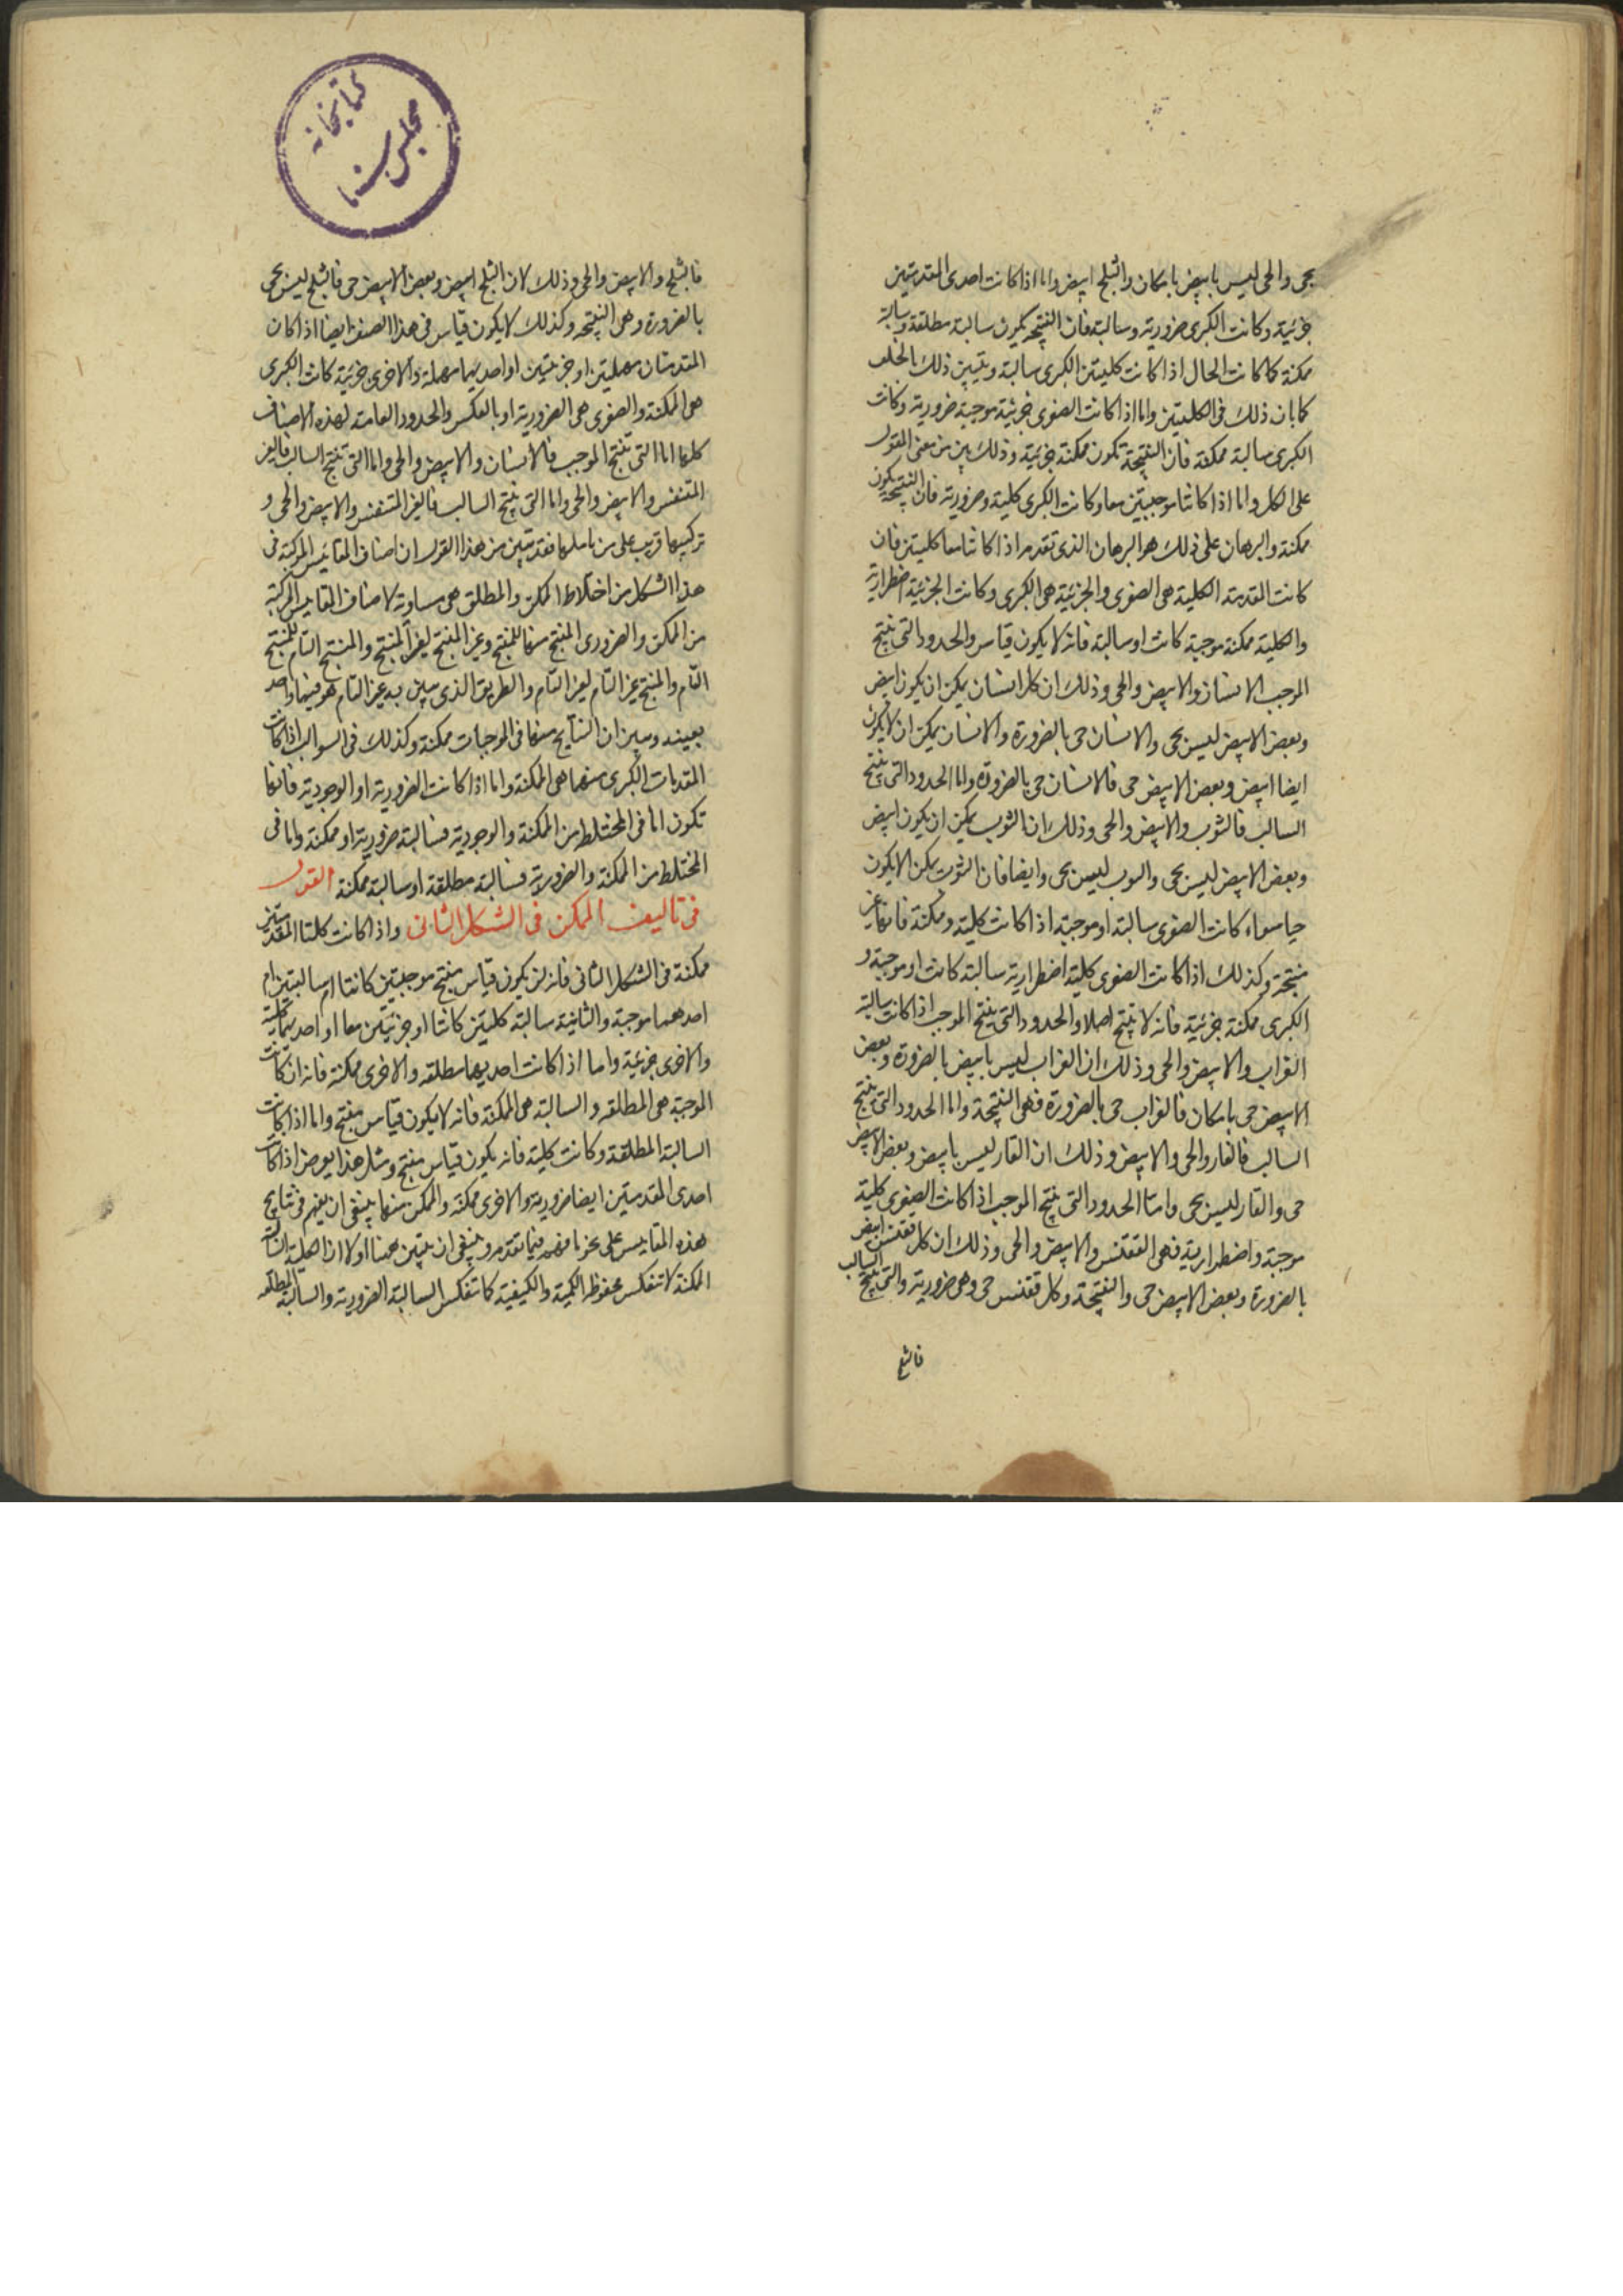 بحى والحى ليس بابيض بامكان والثلج ابيض واما اذا كانت احدى المقدمتين
جزئية وكانت الكبرى ضرورية وسالبة فان النتيجة تكون سالبة مطلقة وسالبة
ممكنة كما كانت الحال اذا كانت كليتين الكبرى سالبة ويتبين ذلك بالخلف
كما بان ذلك فى الكليتين واما اذا كانت الصغرى جزئية موجبة ضرورية وكانت
الكبرى سالبة ممكنة فان النتيجة تكون ممكنة جزئية وذلك بين من معنى المقول
على الكل واما اذا كانتا موجبتين معا وكانت الكبرى كلية وضرورية فان النتيجة تكون
ممكنة والبرهان على ذلك هو البرهان الذى تقدم اذا كانتا معا كليتين فان
كانت المقدمة الكلية هى الصغرى والجزئية هى الكبرى وكانت الجزئية اضطرارية
والكلية ممكنة موجبة كانت او سالبة فانه لا يكون قياس والحدود التى تنتج
الموجب الانسان والابيض والحى وذلك ان كل انسان يمكن ان يكون ابيض
وبعض الابيض ليس بحى والانسان حى بالضرورة والانسان يمكن ان لا يكون
ايضا ابيض وبعض الابيض حى فالانسان حى بالضرورة واما الحدود التى تنتج
السالب فالثوب والابيض والحى وذلك ان الثوب يمكن ان يكون ابيض
وبعض الابيض ليس بحى والثوب ليس بحى وايضا فان الثوب يمكن الا يكون
حيا سواء كانت الصغرى سالبة او موجبة اذا كانت كلية وممكنة فانها غير
منتجة وكذلك اذا كانت الصغرى كلية اضطرارية سالبة كانت او موجبة و
الكبرى ممكنة جزئية فانه لا ينتج اصلا والحدود التى ينتج الموجب اذا كانت سالبة
الغراب والابيض والحى وذلك ان الغراب ليس بابيض بالضرورة وبعض
الابيض حى بامكان فالغراب حى بالضرورة فهى النتيجة واما الحدود التى ينتج
السالب فالقار والحى والابيض وذلك ان القار ليس بابيض وبعض الابيض
حى والقار ليس بحى واما الحدود التى ينتج الموجب اذا كانت الصغرى كلية
موجبة واضطرارية فهى الققنس والابيض والحى وذلك ان كل ققنس ابيض
بالضرورة وبعض الابيض حى والنتيجة وكل ققنس حى وهى ضرورية والتى ينتج السالب
فالثلج
كتابخانه
مجلس سنا
فالثلج والابيض والحى وذلك لان الثلج ابيض وبعض الابيض حى فالثلج ليس بحى
بالضرورة وهى النتيجة وكذلك لا يكون قياس فى هذا الصنف ايضا اذا كان
المقدمتان مهملتين او جزئيتين او احديهما مهملة والاخرى جزئية كانت الكبرى
هى الممكنة والصغرى هى الضرورية او بالعكس والحدود العامة لهذه الاصناف
كلها اما التى تنتج الموجب فالانسان والابيض والحى واما التى تنتج السالب فالغير
المتنفس والابيض والحى واما التى ينتج السالب فالغير المتنفس والابيض والحى و
تركيبها قريب على من تاملها فقد تبين من هذا القول ان اصناف المقائيس المركبة فى
هذا الشكل من اختلاط الممكن والمطلق هى مساوية لاصناف المقاييس المركبة
من الممكن والضرورى المنتج منها للمنتج وغير المنتج لغير المنتج والمنتج التام للمنتج
التام والمنتج غير التام لغير التام والطريق الذى يبين به غير التام هو فيهما واحد
بعينه وبين ان النتايج منها فى الموجبات ممكنة وكذلك فى السوالب اذا كانت
المقدمات الكبرى منهما هى الممكنة واما اذا كانت الضرورية او الوجودية فانها
تكون اما فى المختلط من الممكنة والوجودية فسالبة ضرورية او ممكنة واما فى
المختلط من الممكنة والضرورية فسالبة مطلقة او سالبة ممكنة القول
فى تاليف الممكن فى الشكل الثانى واذا كانت كلتا المقدمتين
ممكنة فى الشكل الثانى فانه لن يكون قياس منتج موجبتين كانتا ام سالبتين ام
احدهما موجبة والثانية سالبة كليتين كانتا او جزئيتين معا او احديهما كلية
والاخرى جزئية واما اذا كانت احديهما مطلقه والاخرى ممكنة فانه ان كانت
الموجبة هى المطلقه والسالبة هى الممكنة فانه لا يكون قياس منتج واما اذا كانت
السالبة المطلقة وكانت كلية فانه يكون قياس منتج ومثل هذا يعرض اذا كانت
احدى المقدمتين ايضا ضرورية والاخرى ممكنة والممكن منها ينبغى ان يفهم فى نتايج
هذه المقاييس على نحو ما فهم فيما تقدم وينبغى ان يتبين ههنا اولا ان الكلية السالبة
الممكنة لا تنعكس محفوظ الكمية والكيفية كما تنعكس السالبة الضرورية والسالبة المطلقه